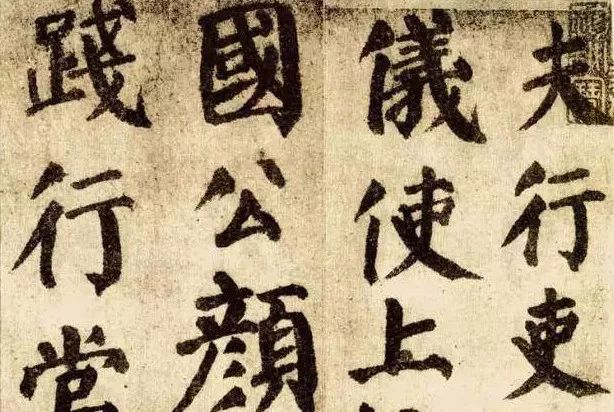 夫行吏
儀使上
國公顔
踐行當